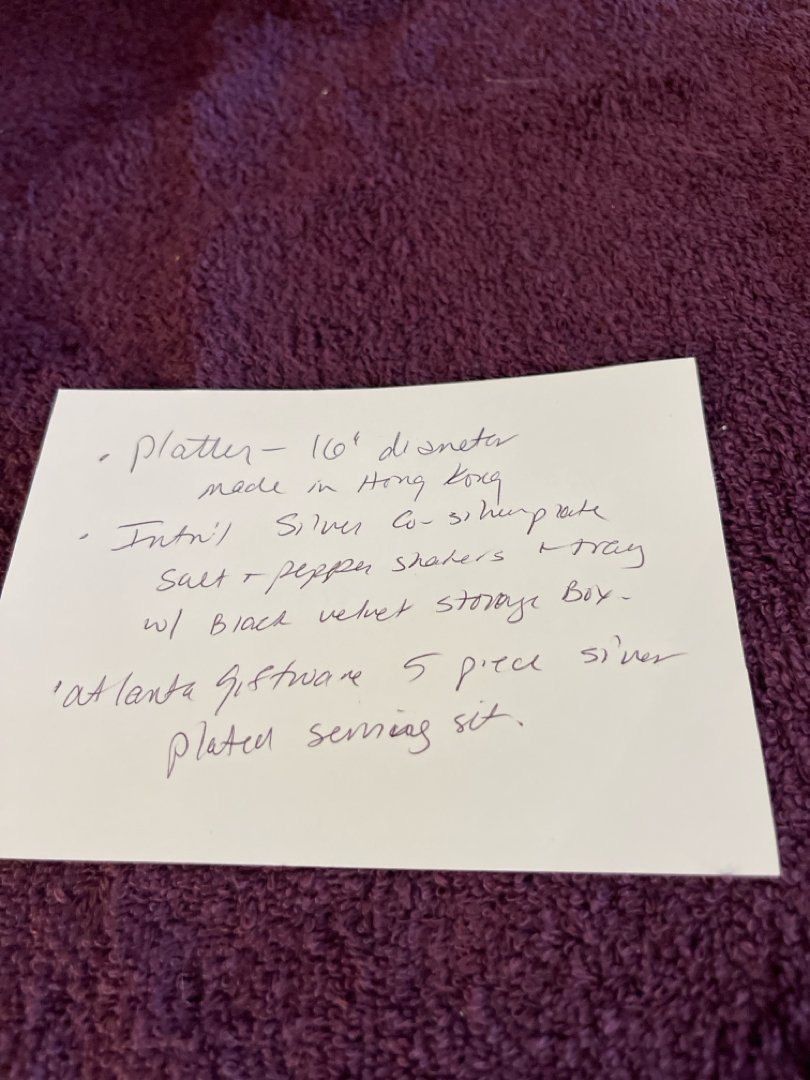 • Platter - 16" diameter
made in Hong Kong
• Intn'l Silver Co - silverplate
Salt + pepper shakers + tray
w/ Black velvet storage Box.
• Atlanta Giftware 5 piece silver
plated serving set.